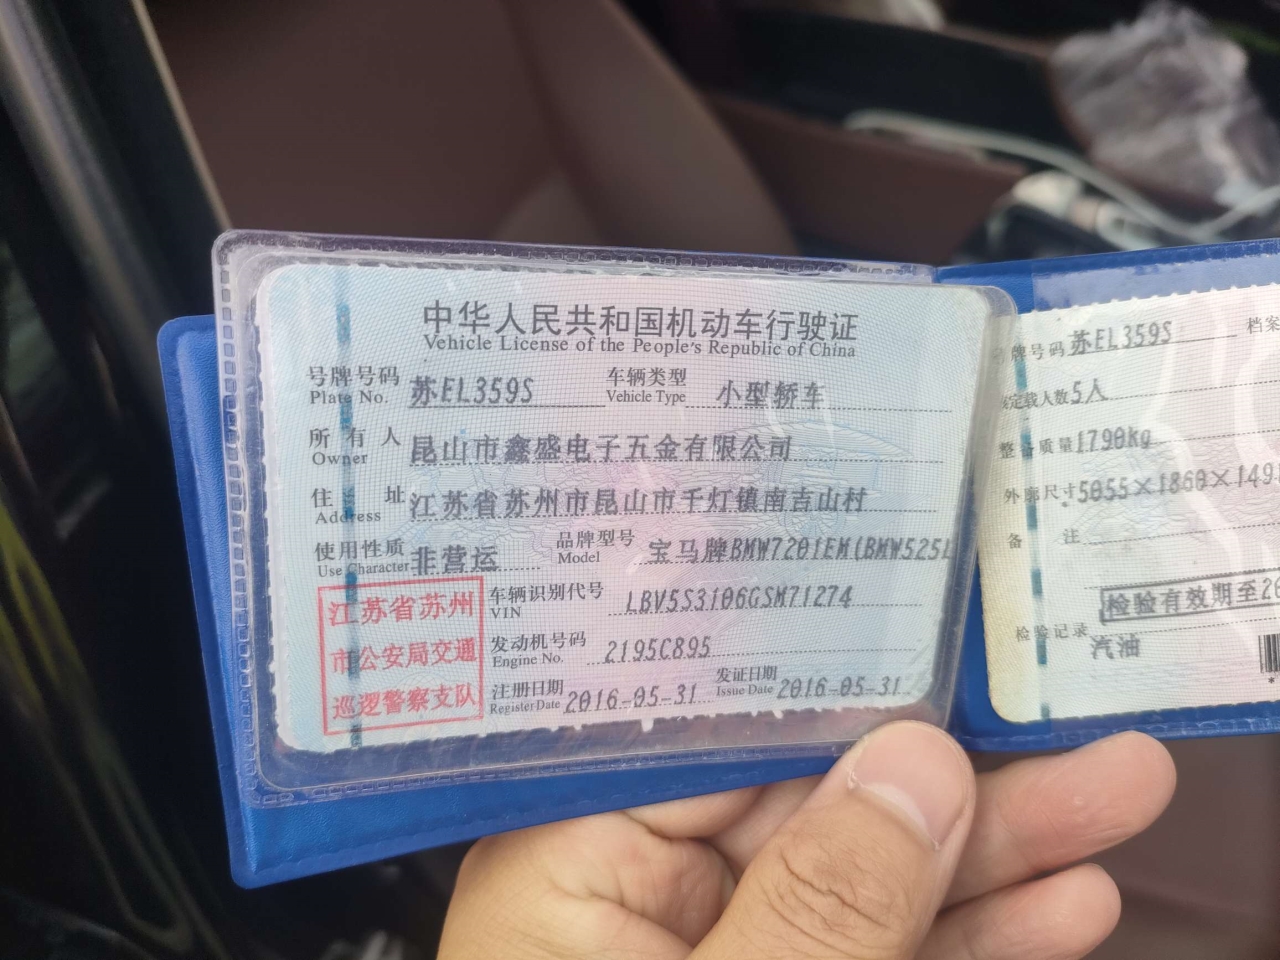 中华人民共和国机动车行驶证
Vehicle License of the People's Republic of China
号牌号码 苏EL359S 车辆类型 小型轿车
Plate No. Vehicle Type
所有人 昆山市鑫盛电子五金有限公司
Owner
住址 江苏省苏州市昆山市千灯镇南吉山村
Address
使用性质 非营运 品牌型号 宝马牌BMW7201EM(BMW525L
Use Character Model
江苏省苏州
市公安局交通
巡逻警察支队
车辆识别代号 LBV5S3106GSM71274
VIN
发动机号码 2195C895
Engine No.
注册日期 2016-05-31 发证日期 2016-05-31
Register Date Issue Date
牌号码 苏EL359S 档案
定载人数 5人
整备质量 1790kg
外廓尺寸 5055×1860×149
备注
检验有效期至20
检验记录
汽油